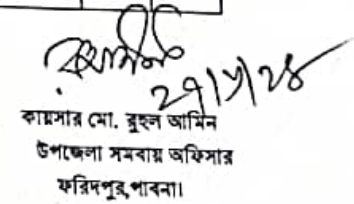 ২৭/৮/২৪
কায়সার মো. রুহুল আমিন
উপজেলা সমবায় অফিসার
ফরিদপুর, পাবনা।